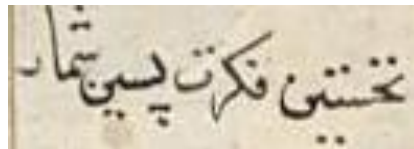 نخستین فکرت پسین شمار